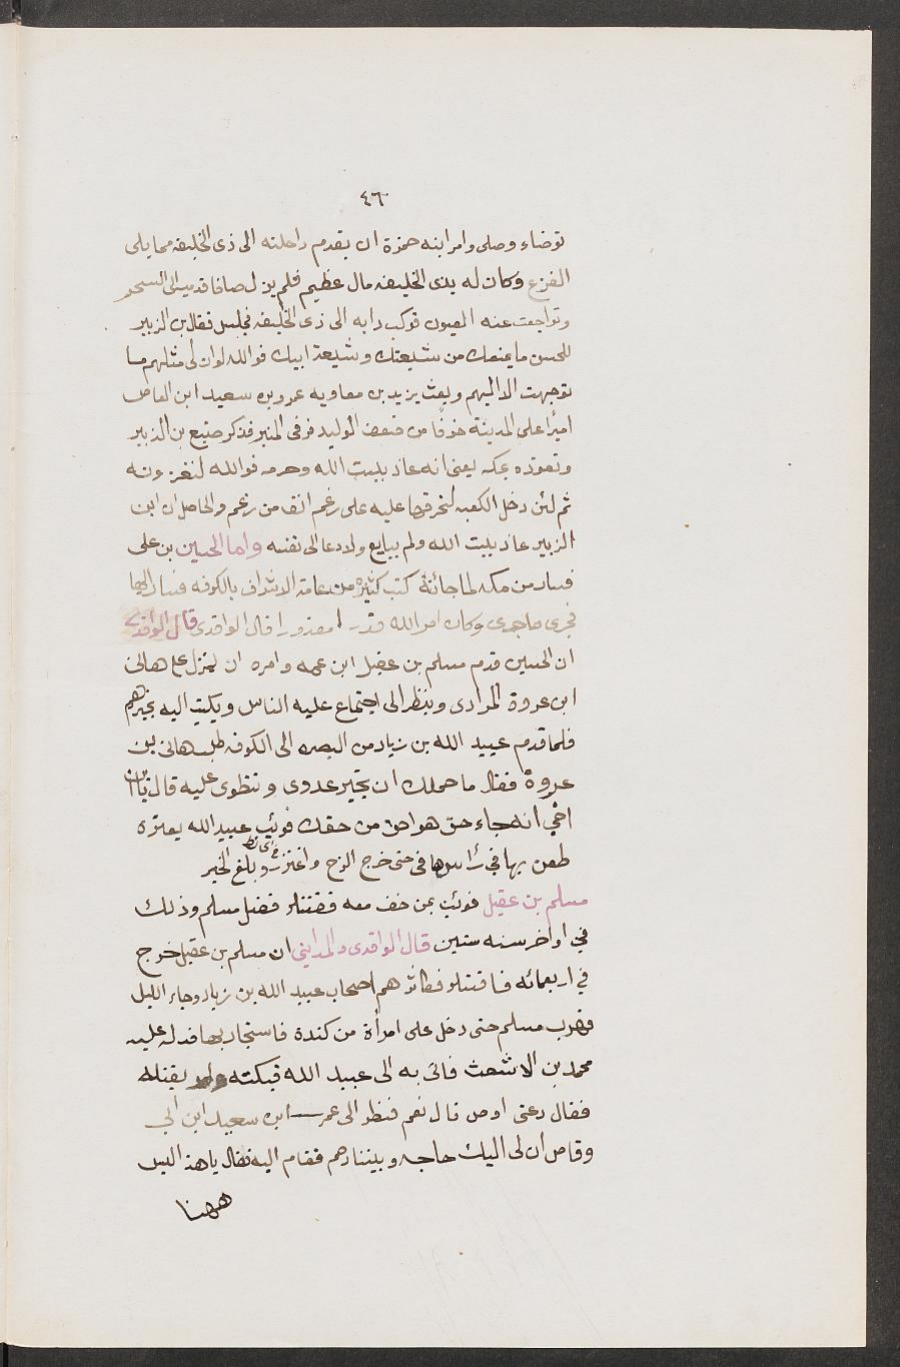 ٤٦
توضاء وصلى وامر ابنه حمزة ان يقدم راحلته الى ذى الخليفه مما يلى
الفرع وكان له بذى الخليفه مال عظيم فلم يزل صافا قدميه الى السحر
وتراجعت عنه العيون فركب دابه الى ذى الخليفه فجلس فقال بن الزبير
للحسن ما يمنعك من شيعتك وشيعة ابيك فوالله لو ان لى مثلهم ما
توجهت الا اليهم وبعث يزيد بن معاويه عمرو بن سعيد ابن العاص
اميرًا على المدينة خوفًا من ضعف الوليد فرقى المنبر فذكر صنيع بن الزبير
وتعوذه بمكه يعنى انه عاذ ببيت الله وحرمه فوالله لنغزونه
ثم لئن دخل الكعبه لنحرقنها عليه على رغم انف من رغم والحاصل ان ابن
الزبير عاذ ببيت الله ولم يبايع ولا دعا الى نفسه واما الحسين بن على
فسار من مكه لما جائته كتب كثيره من عامة الاشراف بالكوفه فسار اليها
فجرى ما جرى وكان امر الله قدرا مقدورا قال الواقدى قال الواقدى
ان الحسين قدم مسلم بن عقيل ابن عمه وامره ان ينزل على هانى
ابن عروة المرادى وينظر الى اجتماع عليه الناس ويكتب اليه بخبرهم
فلما قدم عبيد الله بن زياد من البصره الى الكوفه طلب هانى بن
عروة فقال ما حملك ان تجير عدوى وتنطوى عليه قال يا بن
اخي انه جاء حق هو احق من حقك فوثب عبيد الله بعنزه
طعن بها في راس هانى حتى خرج الزج واغترز وبلغ الخبر
مسلم بن عقيل فوثب بمن خف معه فقتتلو فقتل مسلم وذلك
في اواخر سنه ستين قال الواقدى والمدايني ان مسلم بن عقيل خرج
في اربعمائه فاقتتلو فكاثرهم اصحاب عبيد الله بن زياد وجاء الليل
فهرب مسلم حتى دخل على امرأة من كندة فاستجار بها فدل عليه
محمد بن الاشعث فاتى به الى عبيد الله فبكته يقتله
فقال دعنى اوص قال نعم فنظر الى عمر ابن سعيد ابن ابي
وقاص ان لى اليك حاجه وبيننا رحم فقام اليه فقال يا هذا ليس
ههنا